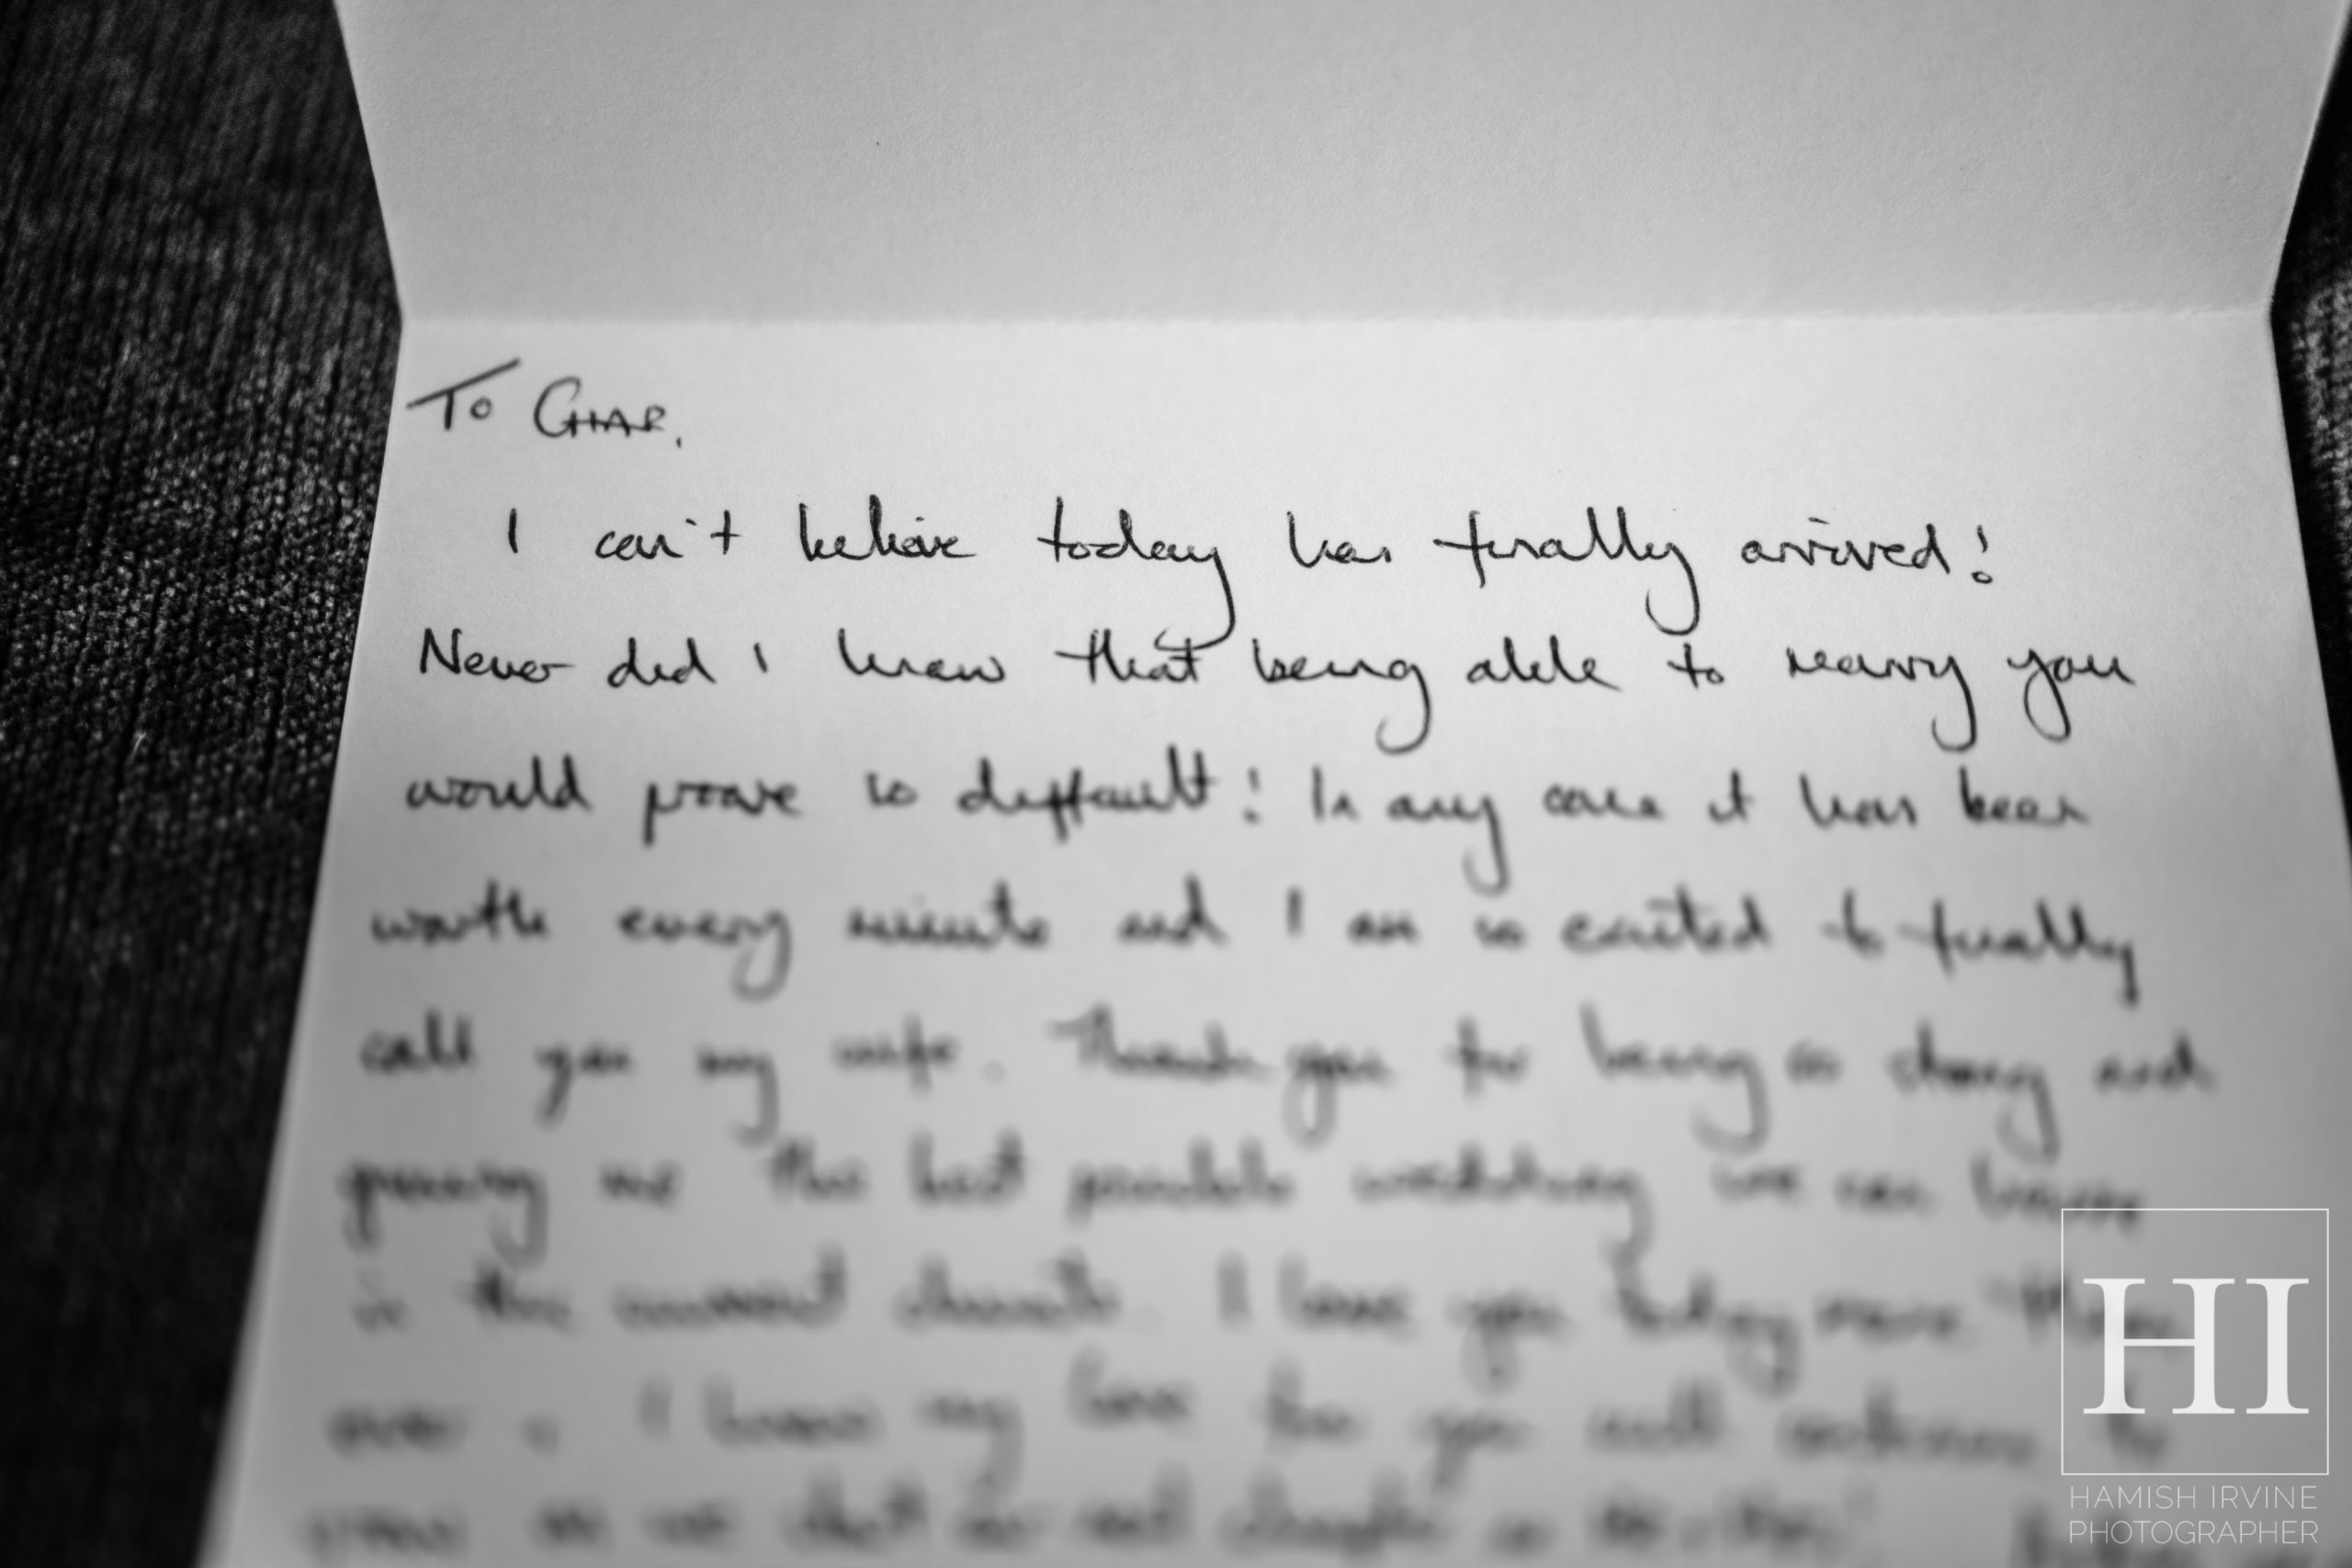 To CHAR,
I can't believe today has finally arrived!
Never did I know that being able to marry you
would prove so difficult! In any case it has been
worth every minute and I am so excited to finally
call you my wife. Thank you for being so strong and
giving me the best possible wedding we can have
in the current climate. I love you today more than
ever I know my love for you will continue to
as we start our next chapter
HI
HAMISH IRVINE
PHOTOGRAPHER